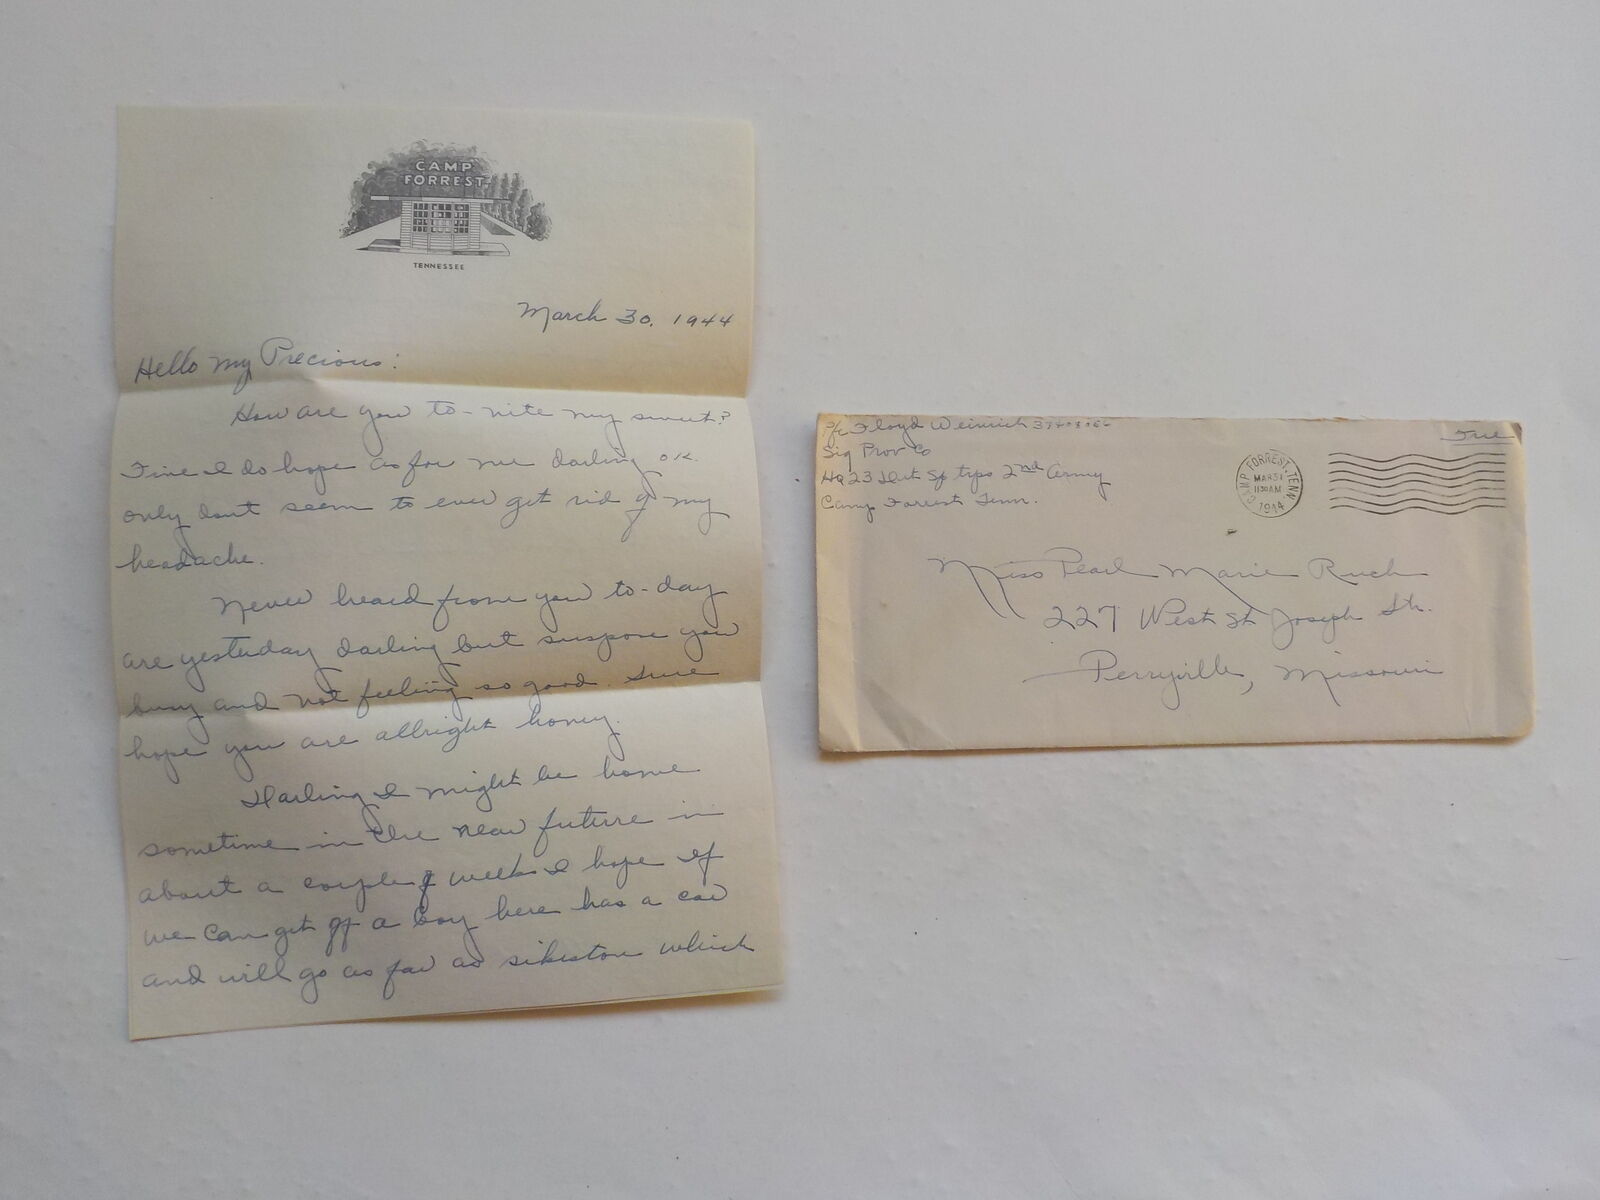 CAMP
FORREST
TENNESSEE
March 30, 1944
Hello my Precious:
How are you to-nite my sweet?
Fine I do hope as for me darling OK.
only dont seem to ever get rid of my
headache.
Never heard from you to-day
are yesterday darling but suspose you
busy and not feeling so good. Sure
hope you are allright honey.
Darling I might be home
sometime in the near future in
about a couple of weeks I hope if
we can get off a boy here has a car
and will go as far as sikeston which
Pfc Floyd Weinrich
Sig Prov Co
Hq 23 Det Sp trps 2nd Army
Camp Forrest Tenn.
Free
CAMP FORREST, TENN.
MAR 31
11 30 AM
1944
Miss Pearl Marie Ruch
227 West St Joseph Str.
Perryville, Missouri